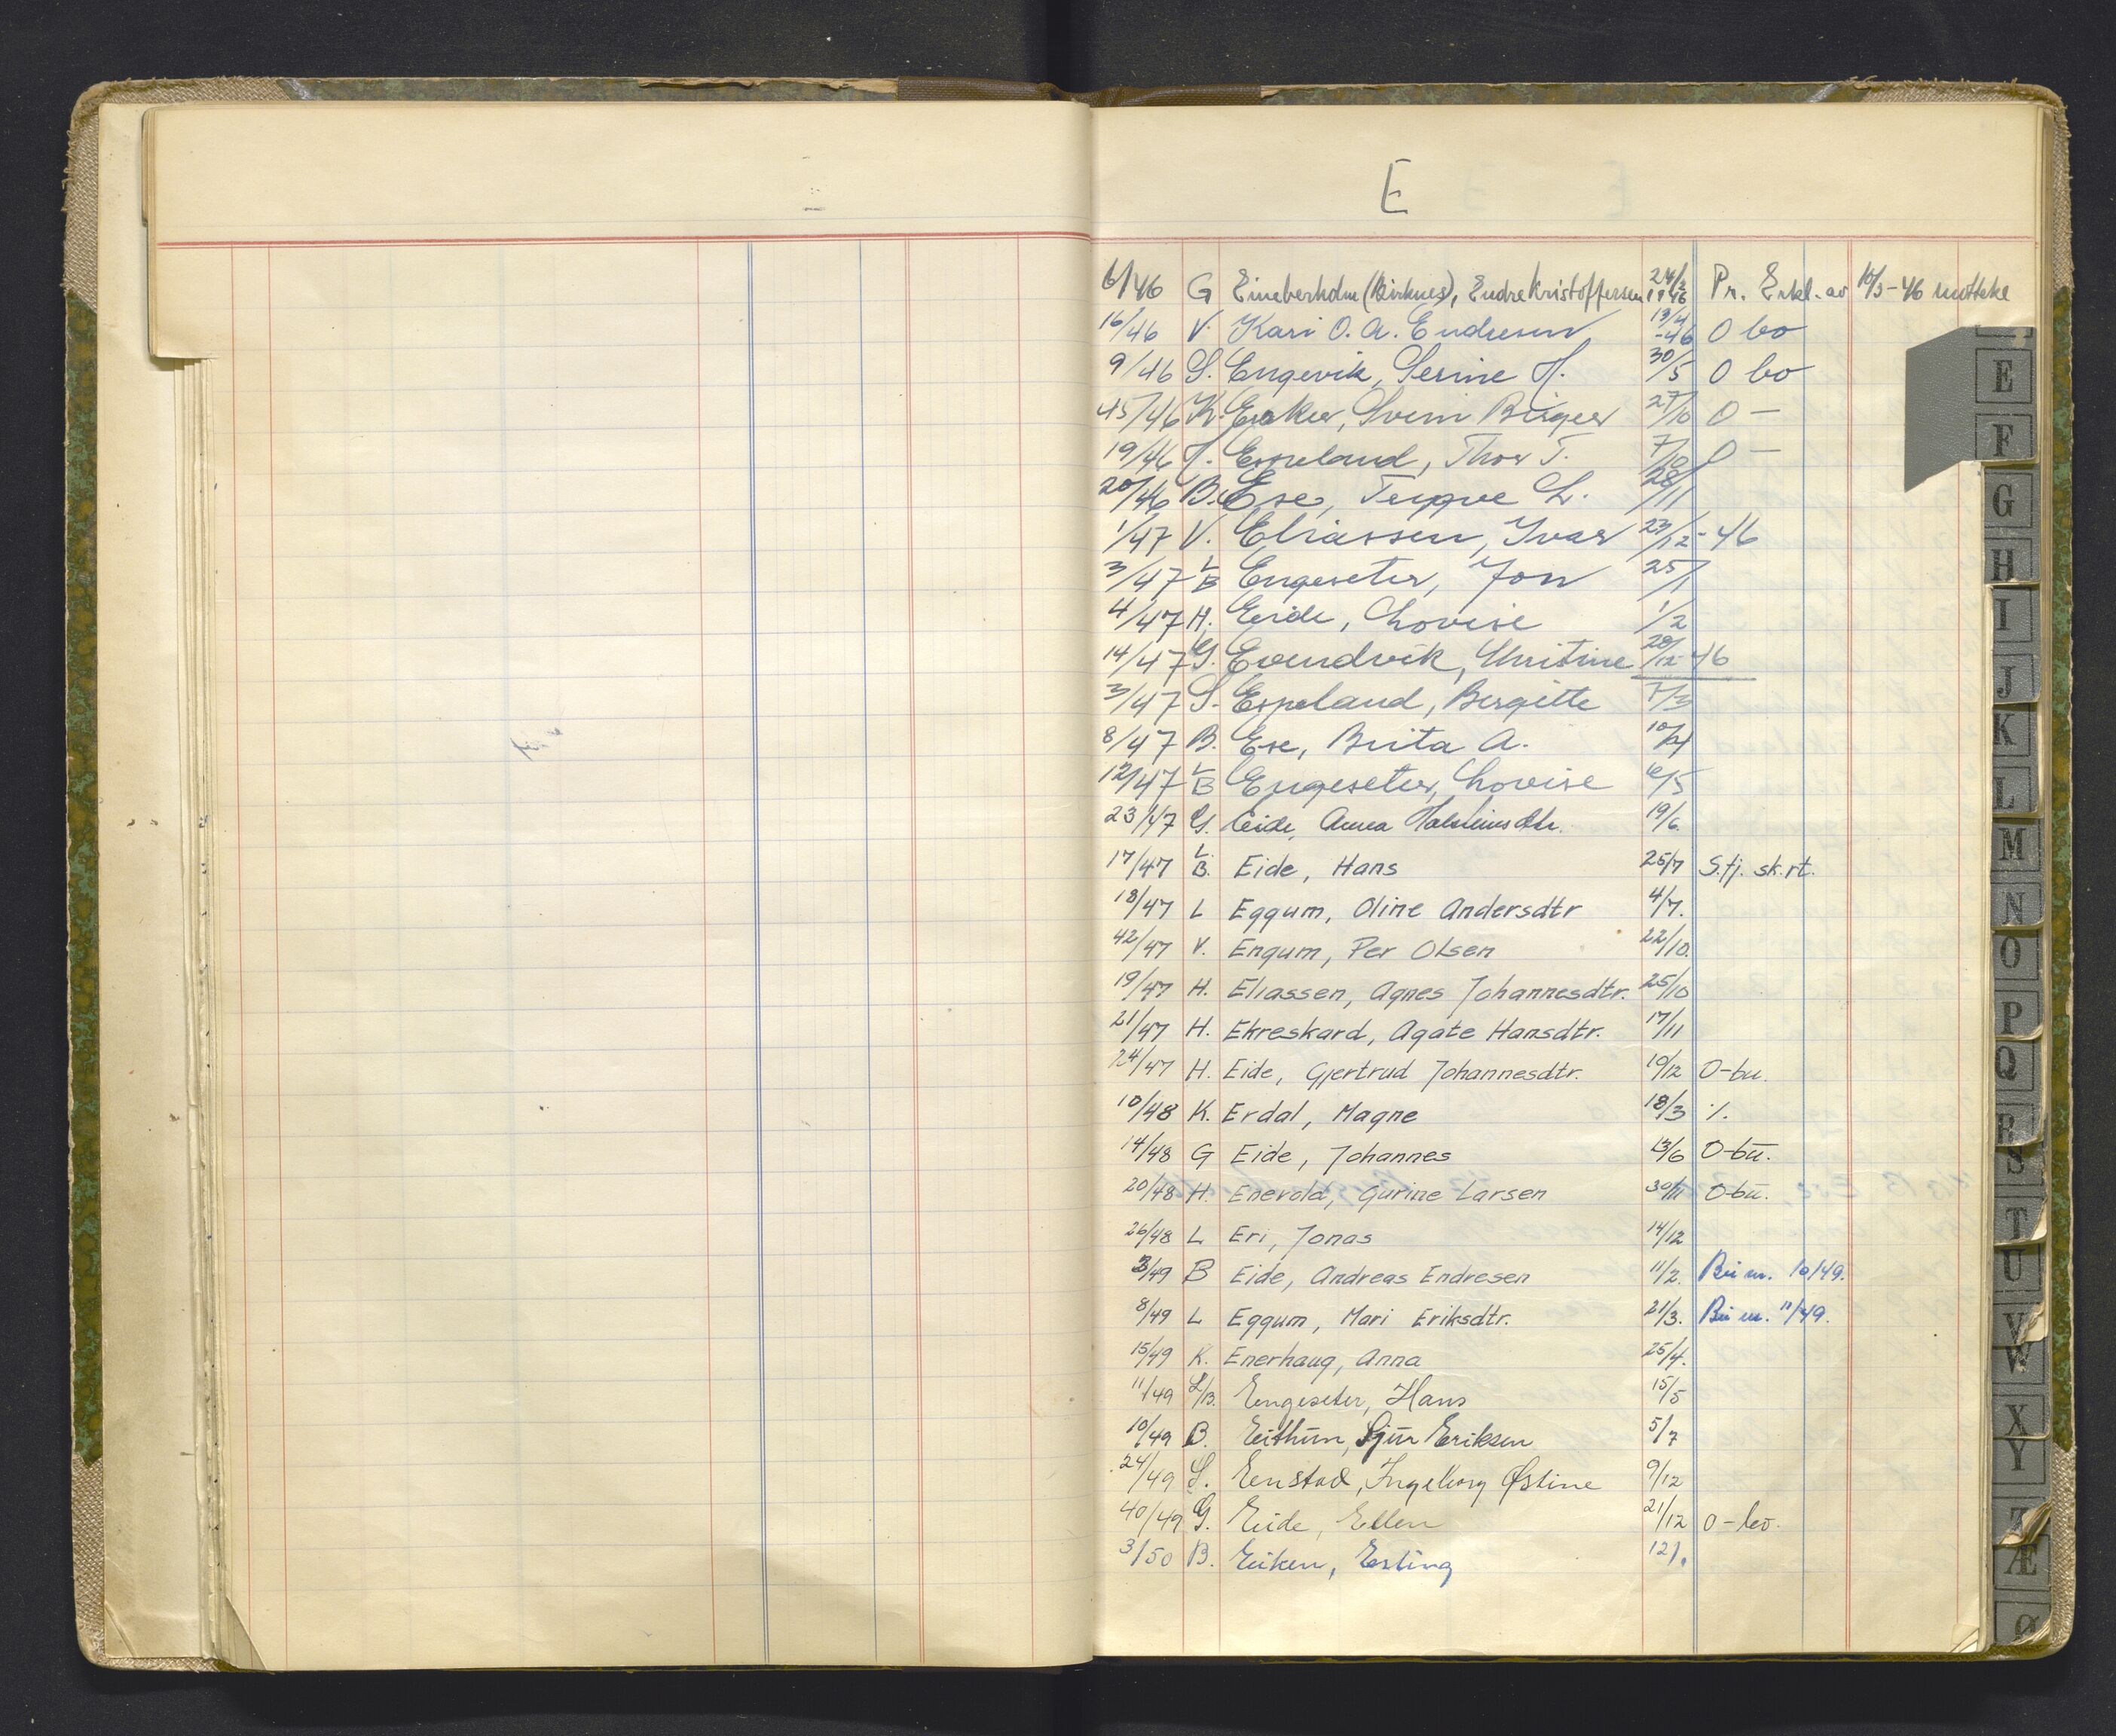 E
6/46 G Eineberholm (Birknes), Endre Kristoffersen 24/2 1946 Pr. Erkl. av 14/3-46 mottoke
16/46 V. Kari O. A. Endresen 13/4 -46 O bo
9/46 S. Engevik, Serine H. 30/5 O bo
45/46 K. Eraker, Svein Birger 27/10 O —
19/46 J. Espeland, Thor T. 7/10 O —
20/46 B. Ese, Trygve L. 28/11
1/47 V. Eliassen, Ivar 23/12-46
3/47 L B Engeseter, Jon 25/1
4/47 H. Eide, Lovise 1/2
14/47 G. Evendvik, Kristine 28/12-46
3/47 S. Espeland, Bergitte 7/3
8/47 B. Ese, Brita A. 10/4
12/47 L B Engeseter, Lovise 6/5
23/47 G. Eide, Anna Halsteinsdtr. 19/6
17/47 L. B. Eide, Hans 25/7 S.fj. sk.rt.
18/47 L Eggum, Oline Andersdtr 4/7.
42/47 V. Engum, Per Olsen 22/10.
19/47 H. Eliassen, Agnes Johannesdtr. 25/10
21/47 H. Ekreskard, Agate Hansdtr. 17/11
24/47 H. Eide, Gjertrud Johannesdtr. 19/12 O-bu.
10/48 K. Erdal, Magne 18/3 ./.
14/48 G Eide, Johannes 13/6 O-bu.
20/48 H. Enevold, Gurine Larsen 30/11 O-bu.
26/48 L Eri, Jonas 14/12
3/49 B Eide, Andreas Endresen 11/2. Bu m. 10/49.
8/49 L Eggum, Mari Eriksdtr. 21/3. Bu m. 11/49.
15/49 K. Enerhaug, Anna 25/4.
11/49 L/B. Engeseter, Hans 15/5
10/49 B. Eithun, Sjur Eriksen 5/7
24/49 S. Enstad, Ingeborg Østine 9/12
40/49 G. Eide, Ellen 21/12 O-bo.
3/50 B. Eiken, Erling 12/1
E
F
G
H
I
J
K
L
M
N
O
P
Q
R
S
T
U
V
W
X
Y
Z
Æ
Ø